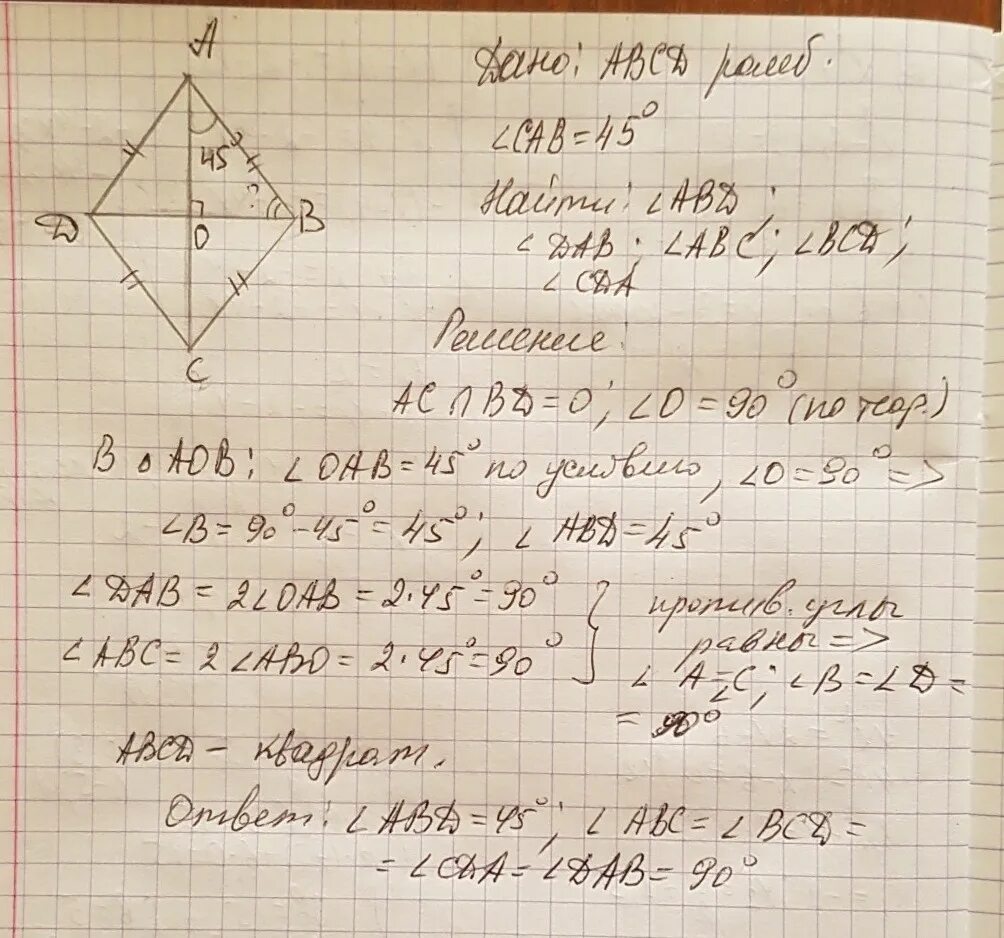 A
45°
?
D
O
B
C
Дано: ABCD ромб.
∠CAB = 45°
Найти: ∠ABD;
∠DAB; ∠ABC; ∠BCD;
∠CDA
Решение:
AC ∩ BD = O; ∠O = 90° (по теор.)
В △ AOB: ∠OAB = 45° по условию, ∠O = 90° =>
∠B = 90° - 45° = 45°; ∠ABD = 45°
∠DAB = 2∠OAB = 2·45° = 90°
∠ABC = 2∠ABO = 2·45° = 90°
против. углы
равны =>
∠A = ∠C; ∠B = ∠D =
= 90°
ABCD - квадрат.
Ответ: ∠ABD = 45°; ∠ABC = ∠BCD =
= ∠CDA = ∠DAB = 90°